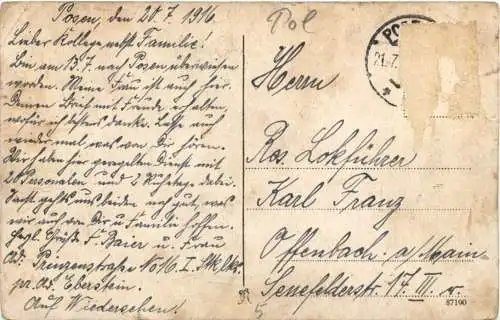 Posen, den 20.7.1916.
Lieber Kollege nebst Familie!
Bin am 13.7. nach Posen überwiesen
worden. Meine Frau ist auch hier.
Deinen Brief mit Freude erhalten,
wofür ich bestens danke. Lasse auch
wieder mal was von Dir hören.
Wir haben hier geregelten Dienst mit
2 Ruhetage dabei.
Sonst geht's uns beiden noch gut, was
wir auch von Dir u. Familie hoffen.
Herzl. Grüße Fr. Baier u. Frau
Ad: Prinzenstraße No 16. I. Stk. lks.
pr. Ad. Eberstein.
Auf Wiedersehen!
Pol
POSEN
21.7.
Herrn
Res. Lokführer
Karl Franz
Offenbach a/Main
Senefelderstr. 17 III. r.
5
87100